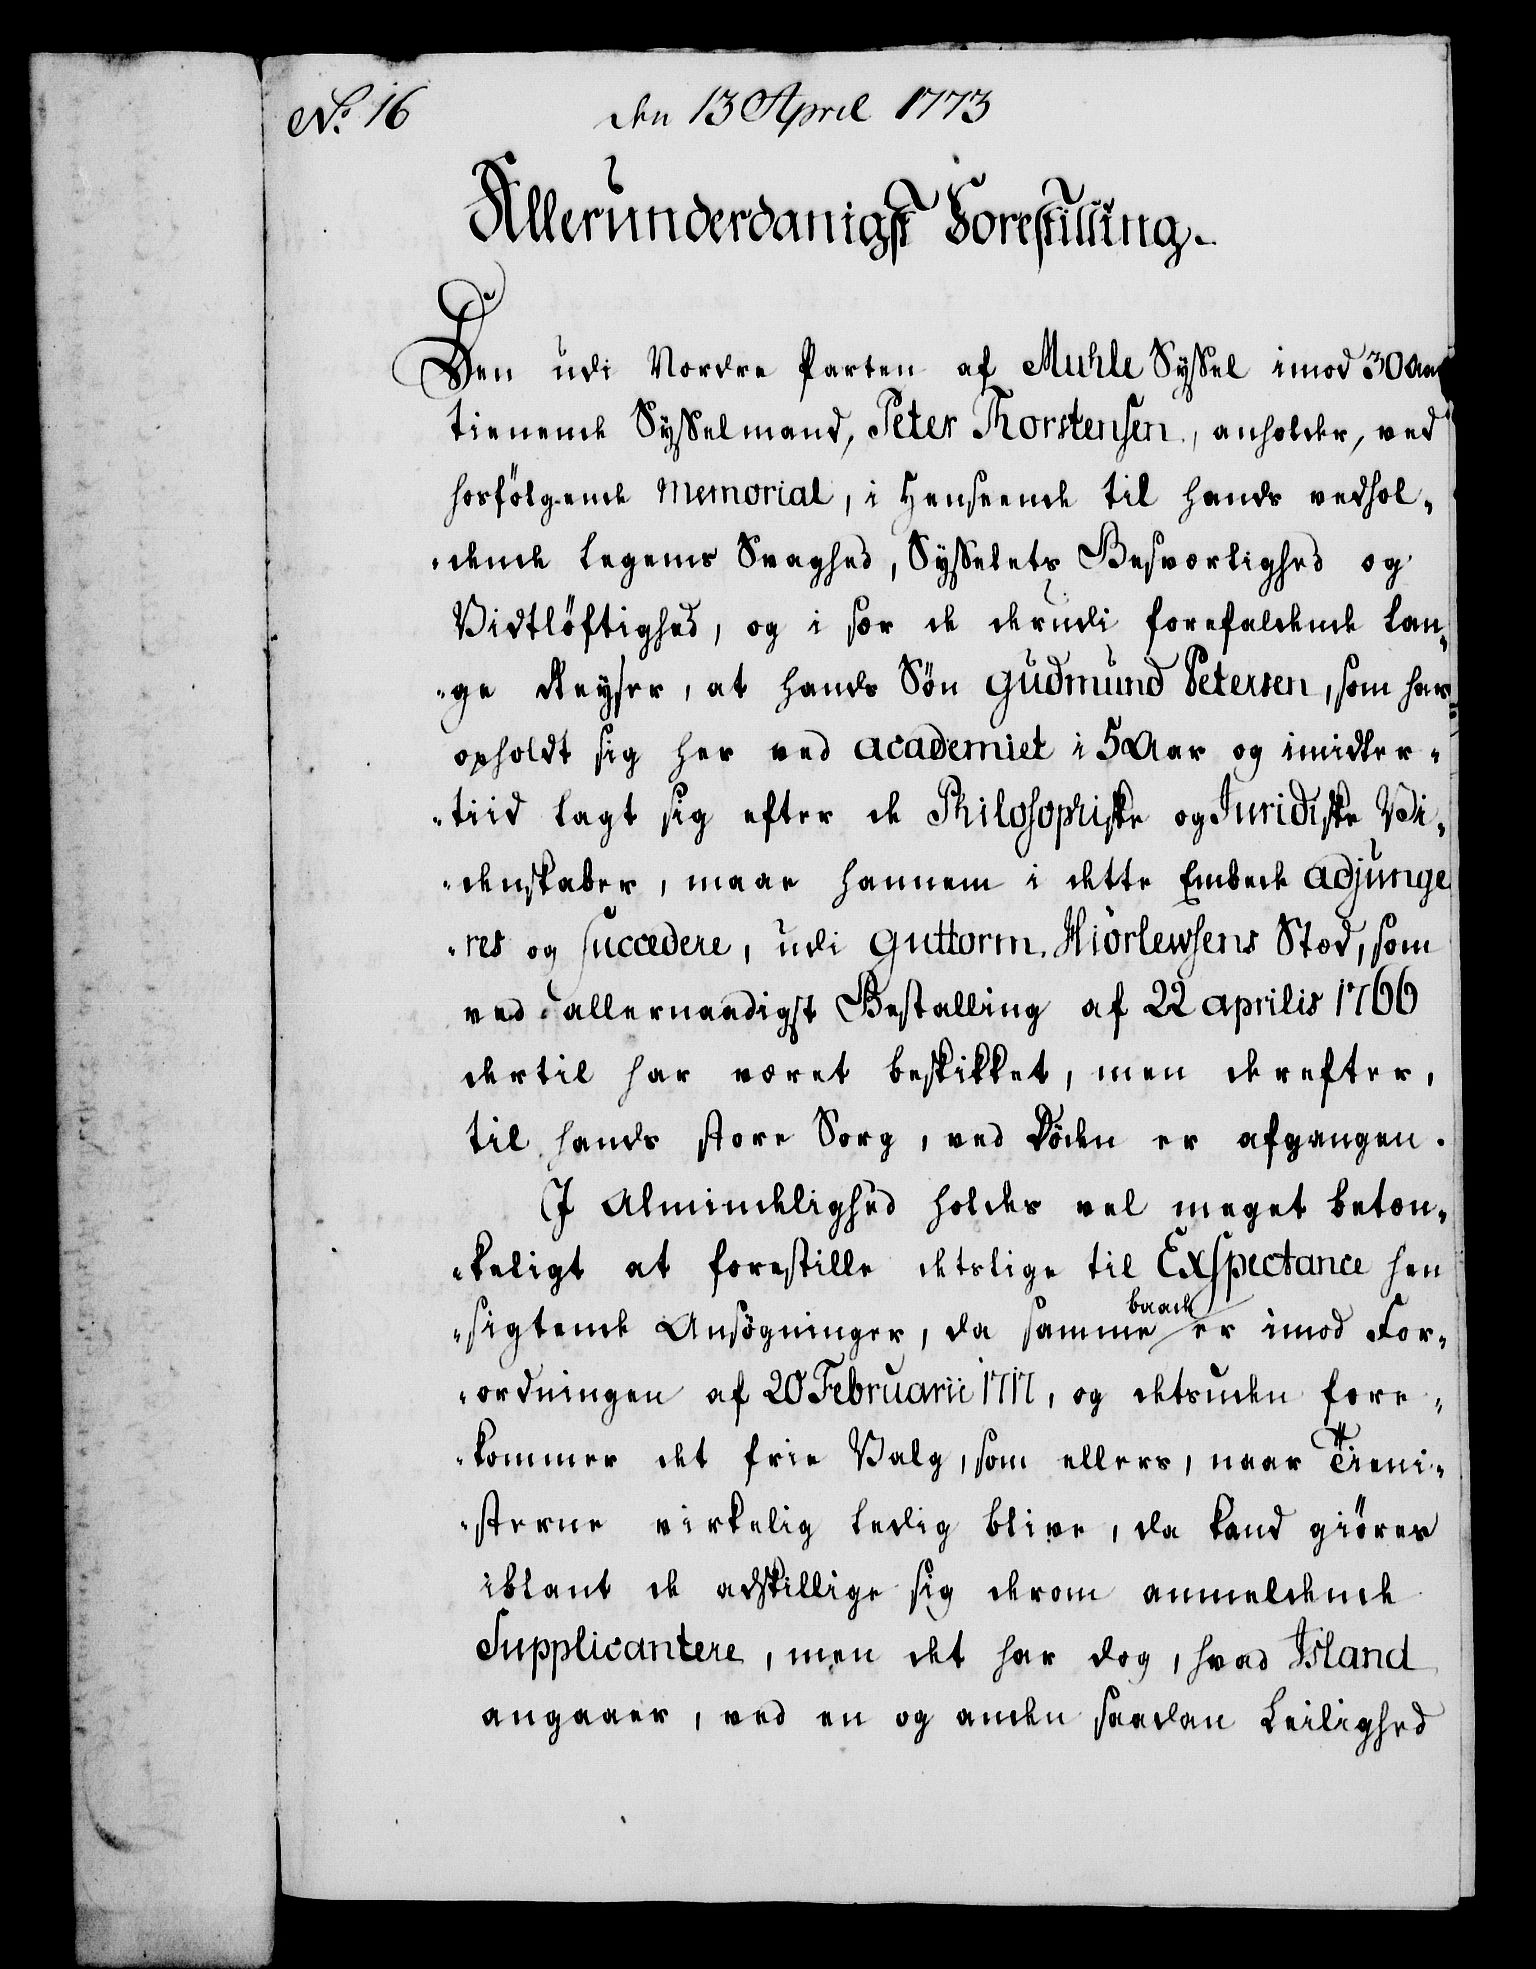 No. 16 den 13 April 1773
Allerunderdanigst Forestilling.
Den udi Nordre Parten af Muhle Syssel imod 30 Aar
tienende Sysselmand, Peter Thorstensen, anholder, ved
hosfölgende Memorial, i Henseende til hands vedhol-
-dende Legems Svaghed, Sysselets Besværlighed og
Vidtlöftighed, og i sær de derudi forefaldende lan-
-ge Reyser, at hands Sön Gudmund Petersen, som har
opholdt sig her ved Academiet i 5 Aar og imidler-
-tiid lagt sig efter de Philosophiske og Juridiske Vi-
-denskaber, maae hannem i dette Embede adjunge
-res og succedere, udi Guttorm Hiörlewsens Sted, som
ved allernaadigst Bestalling af 22 Aprilis 1766
dertil har været beskikket, men derefter,
til hands store Sorg, ved Döden er afgangen.
I Almindelighed holdes vel meget betæn-
-keligt at forestille deslige til Exspectance hen
-sigtende Ansögninger, da samme baade er imod For-
-ordningen af 20 Februarii 1717, og desuden fore-
-kommer det frie Valg, som ellers, naar Tieni-
-sterne virkelig ledig blive, da kand giöres
iblant de adskillige sig derom anmeldende
Supplicantere, men det har dog, hvad Island
angaaer, ved en og anden saadan Leilighed